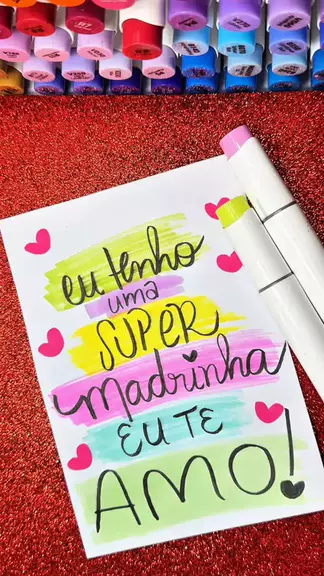 eu tenho
uma
SUPER
madrinha
EU TE
AMO!